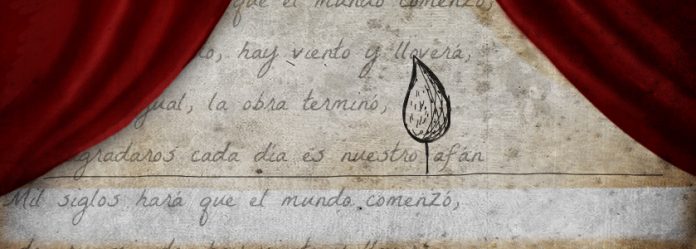 que el mundo comenzó,
hay viento y lloverá,
igual, la obra terminó,
agradaros cada día es nuestro afán
Mil siglos hará que el mundo comenzó,